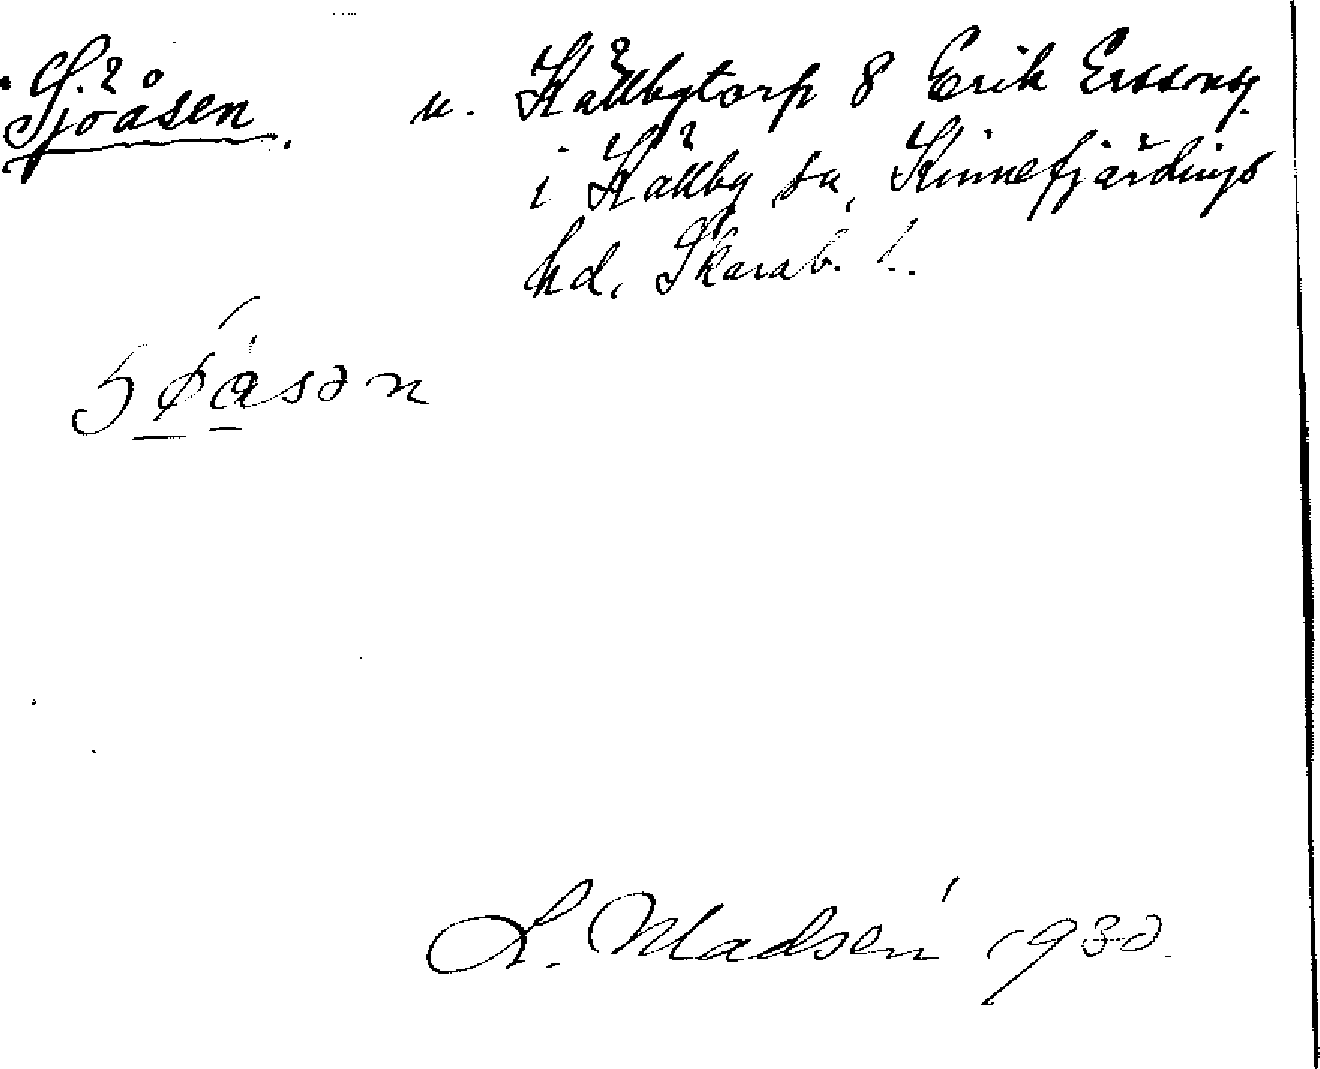 Sjöåsen. u. Källbytorp 8 Erik Erssonsg.
i Källby sn, Kinnefjärdings
hd, Skarab. l.
L. Madsén 1930.